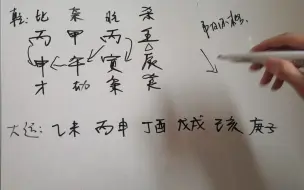 乾: 比 枭 比 杀
丙 甲 丙 壬
申 午 寅 辰
才 劫 枭 食
大运: 乙未 丙申 丁酉 戊戌 己亥 庚子